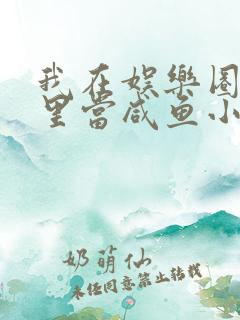 我在娱乐圈
里当咸鱼小
奶萌仙
未经同意禁止转载